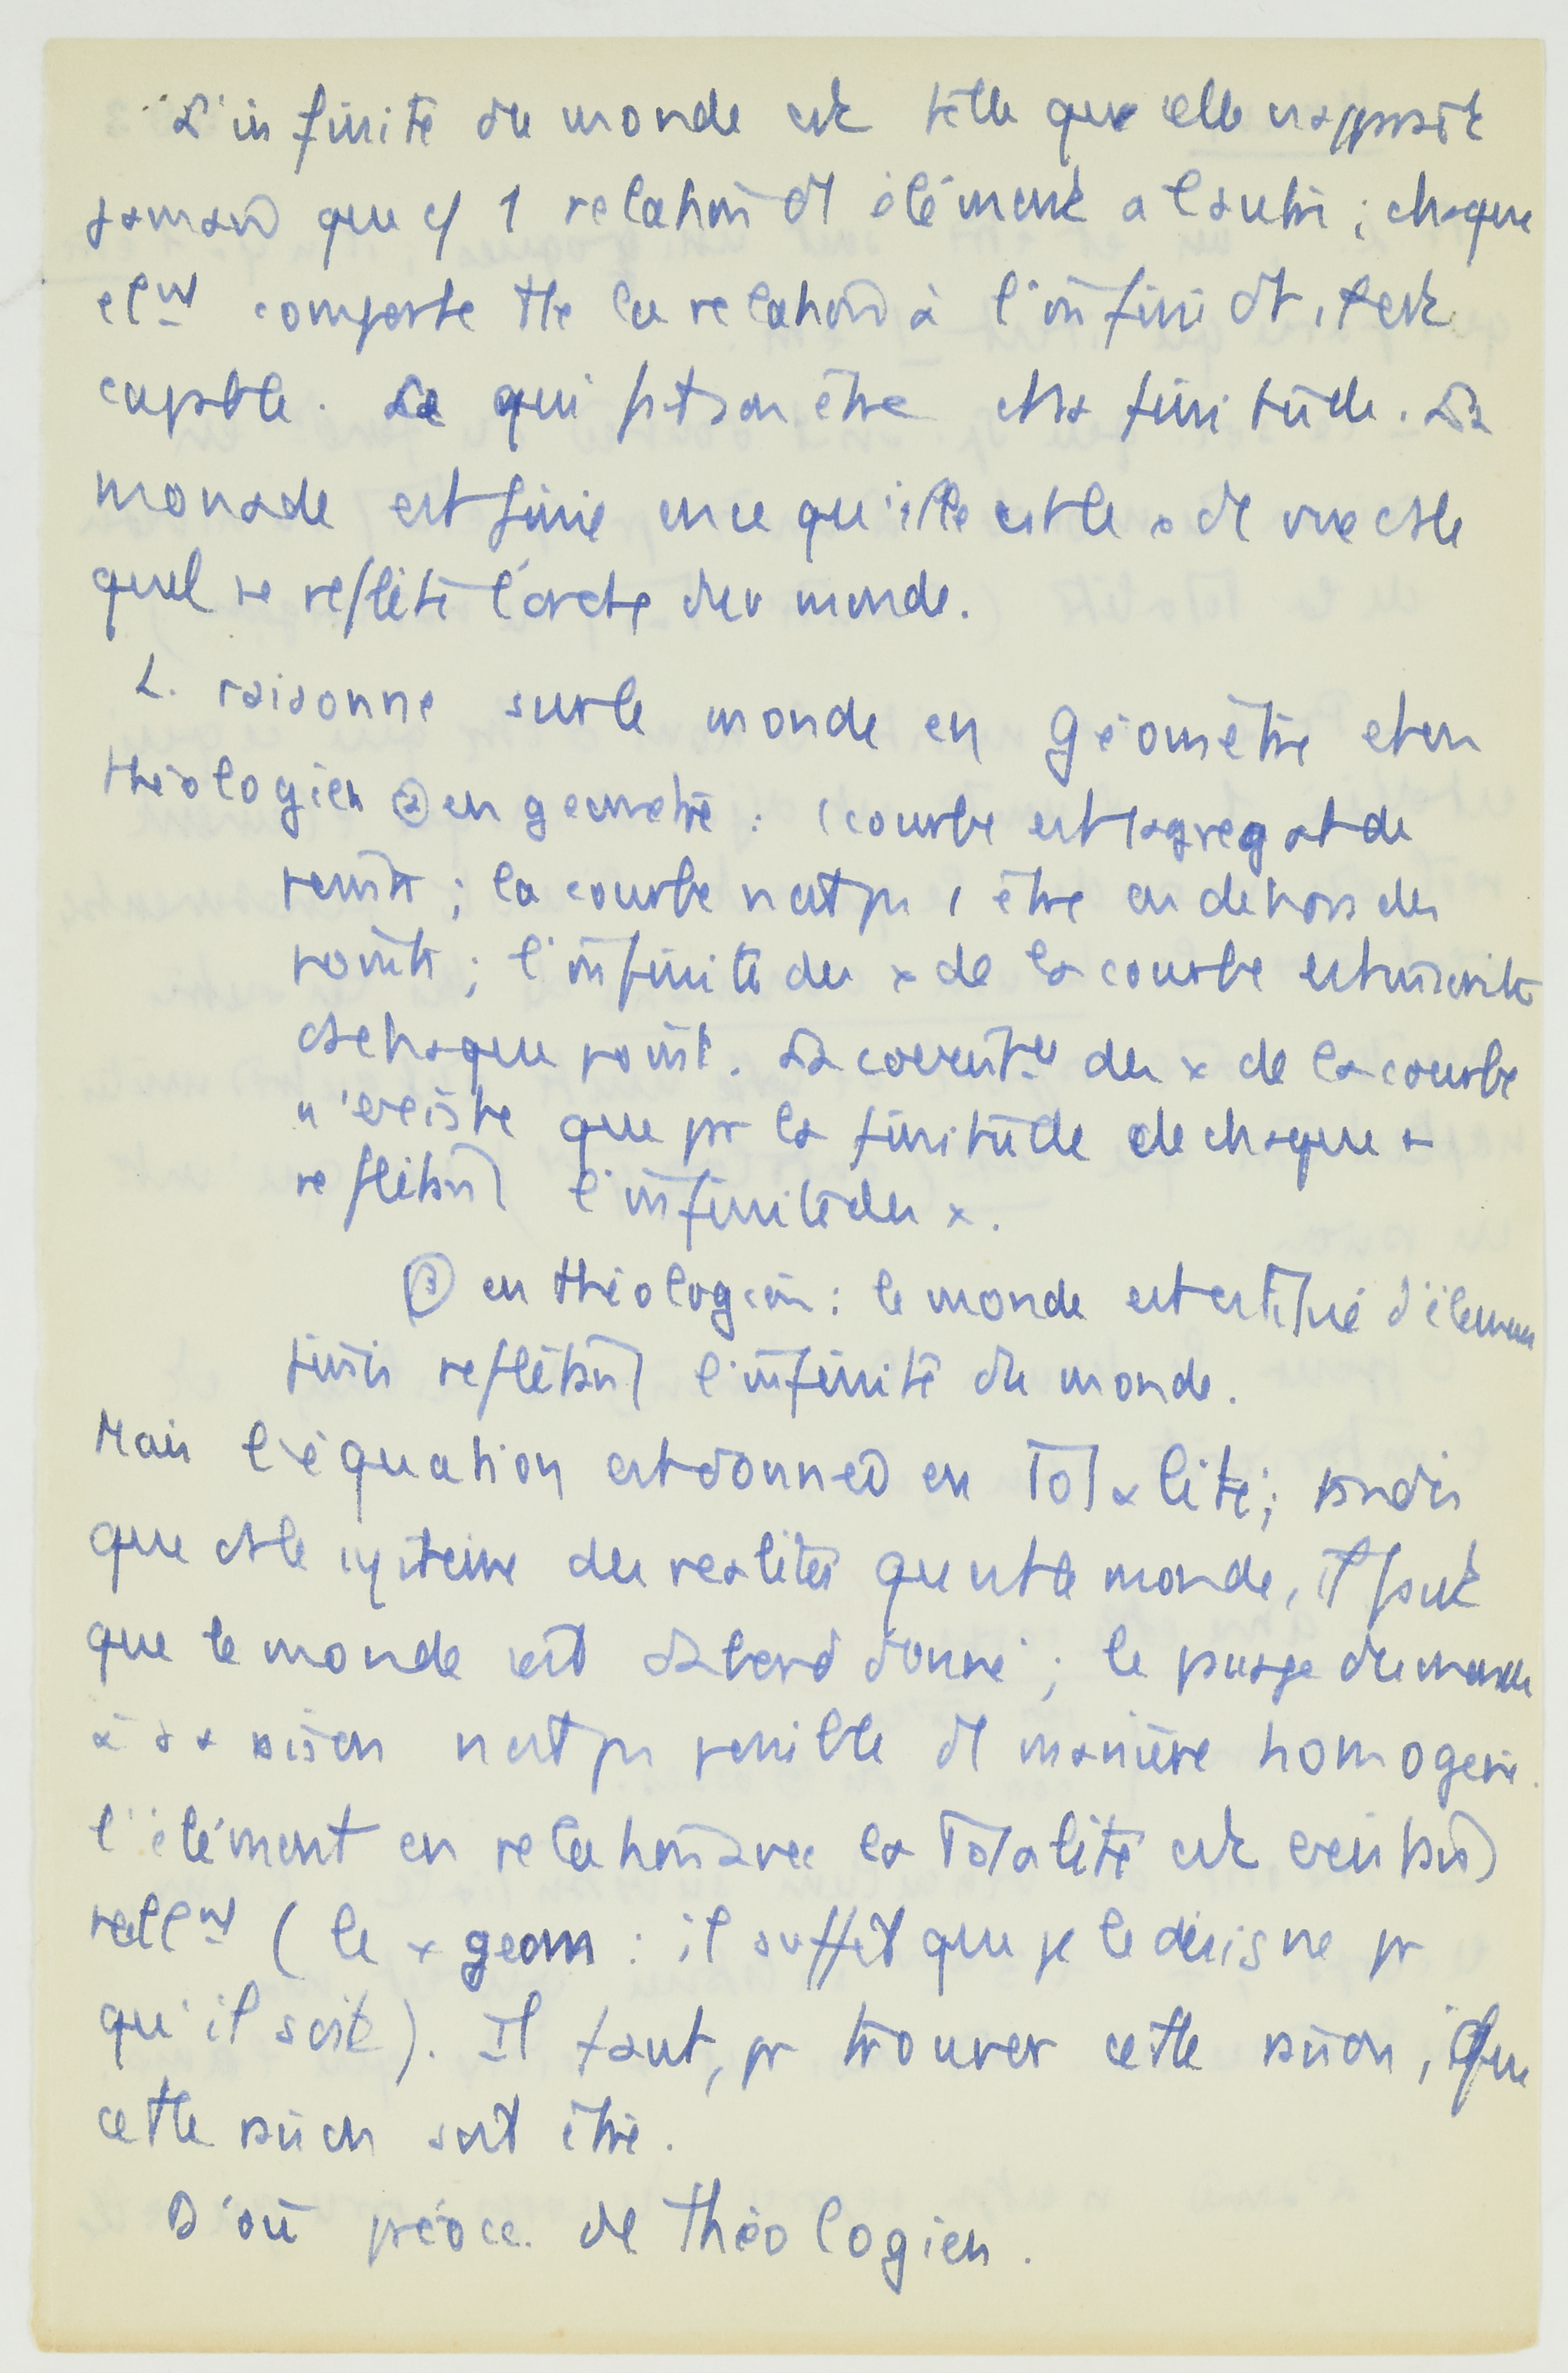 L'infinité du monde est telle que elle n'apparaît
jamais que c/ 1 relation d'1 élément a l'autre ; chaque
elmt comporte tte les relations à l'infini dt il est
capable. Ce qui fait son être c'est sa finitude. La
monade est finie en ce qu'elle est le x de vue ds le
quel se reflète l'ordre du monde.
L. raisonne sur le monde en géomètre et en
théologien (α) en geometre : 1 courbe est 1 agregat de
points ; la courbe n'est pas 1 être en dehors des
points ; l'infinité des x de la courbe est inscrite
ds chaque point. La coexistence des x de la courbe
n'existe que par la finitude de chaque x
reflétant l'infinité des x.
(β) en théologien : le monde est constitué d'élements
finis reflétant l'infinité du monde.
Mais l'équation est donnée en Totalité ; tandis
que ds le système des realités qu'est le monde, il faut
que le monde soit d'abord donné ; le passage du monde
à sa raison n'est pas possible de manière homogene.
l'élément en relation avec la Totalité est existant
reellmt ( le x geom : il suffit que je le désigne pr
qu'il soit ). Il faut, pr trouver cette raison, que
cette raison soit être.
D'où préocc. de théologien.